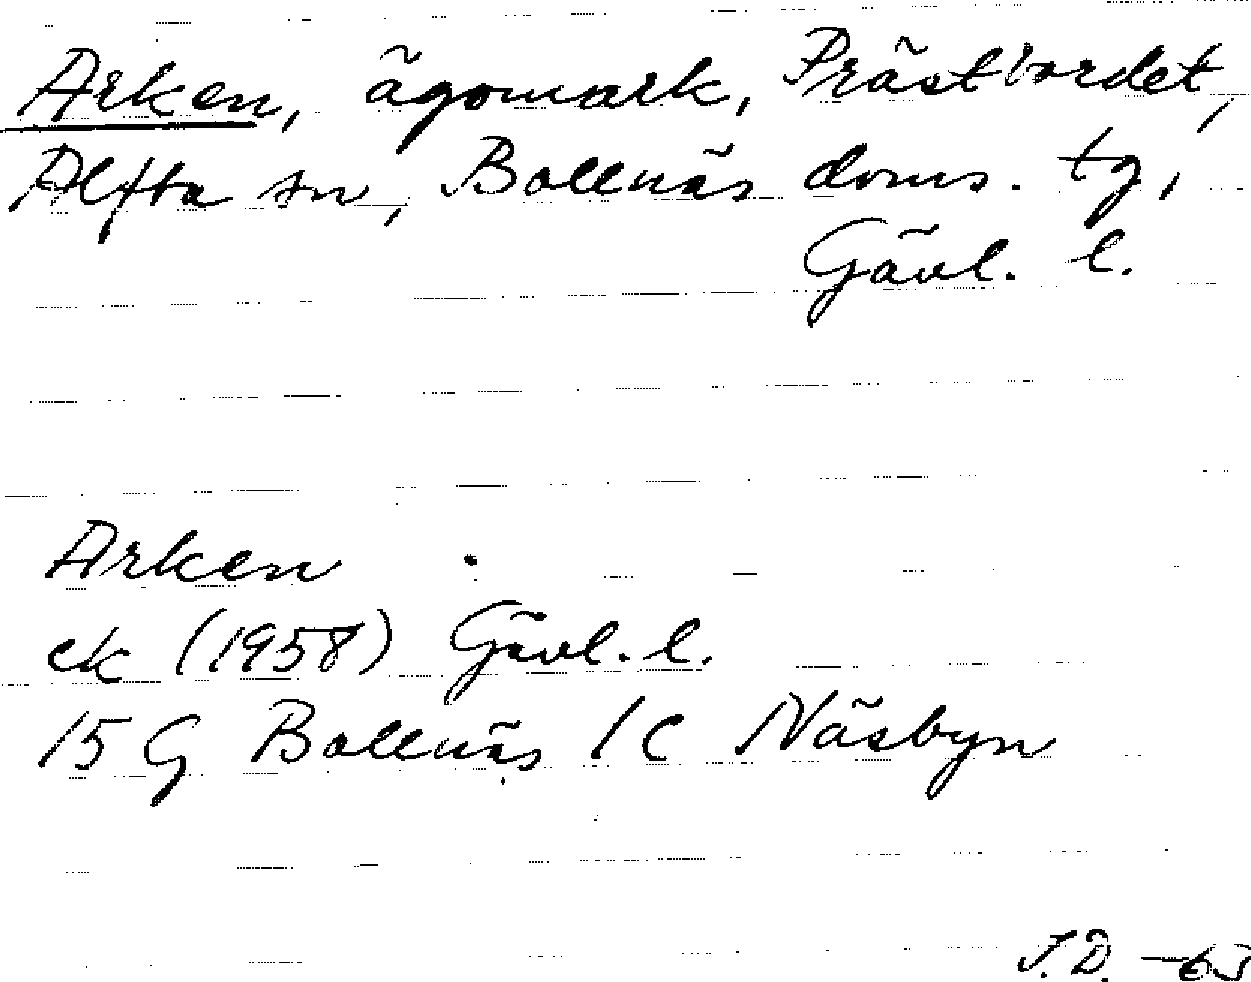 Arken, ägomark, Prästbordet,
Alfta sn, Bollnäs doms. tg,
Gävl. l.
Arken
ek (1958) Gävl. l.
15 G Bollnäs 1 c Näsbyn
J.D. -63